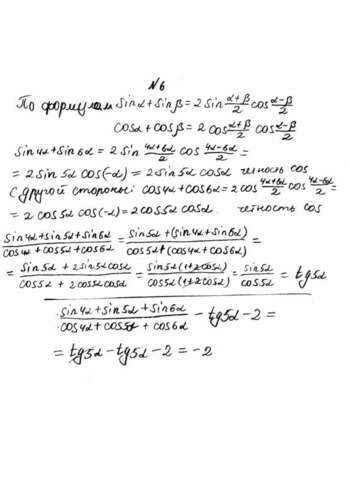 №6
По формулам sinα + sinβ = 2 sin (α+β)/2 cos (α-β)/2
cosα + cosβ = 2 cos (α+β)/2 cos (α-β)/2
sin4α + sin6α = 2 sin (4α+6α)/2 cos (4α-6α)/2 =
= 2 sin 5α cos(-α) = 2 sin 5α cosα четность cos
С другой стороны: cos4α + cos6α = 2 cos (4α+6α)/2 cos (4α-6α)/2 =
= 2 cos 5α cos(-α) = 2 cos 5α cosα. четность cos
(sin4α + sin5α + sin6α)/(cos4α + cos5α + cos6α) = (sin5α + (sin4α + sin6α))/(cos5α + (cos4α + cos6α)) =
= (sin5α + 2 sin5α cosα)/(cos5α + 2 cos5α cosα) = (sin5α(1+2cosα))/(cos5α(1+2cosα)) = sin5α/cos5α = tg5α
(sin4α + sin5α + sin6α)/(cos4α + cos5α + cos6α) - tg5α - 2 =
= tg5α - tg5α - 2 = -2